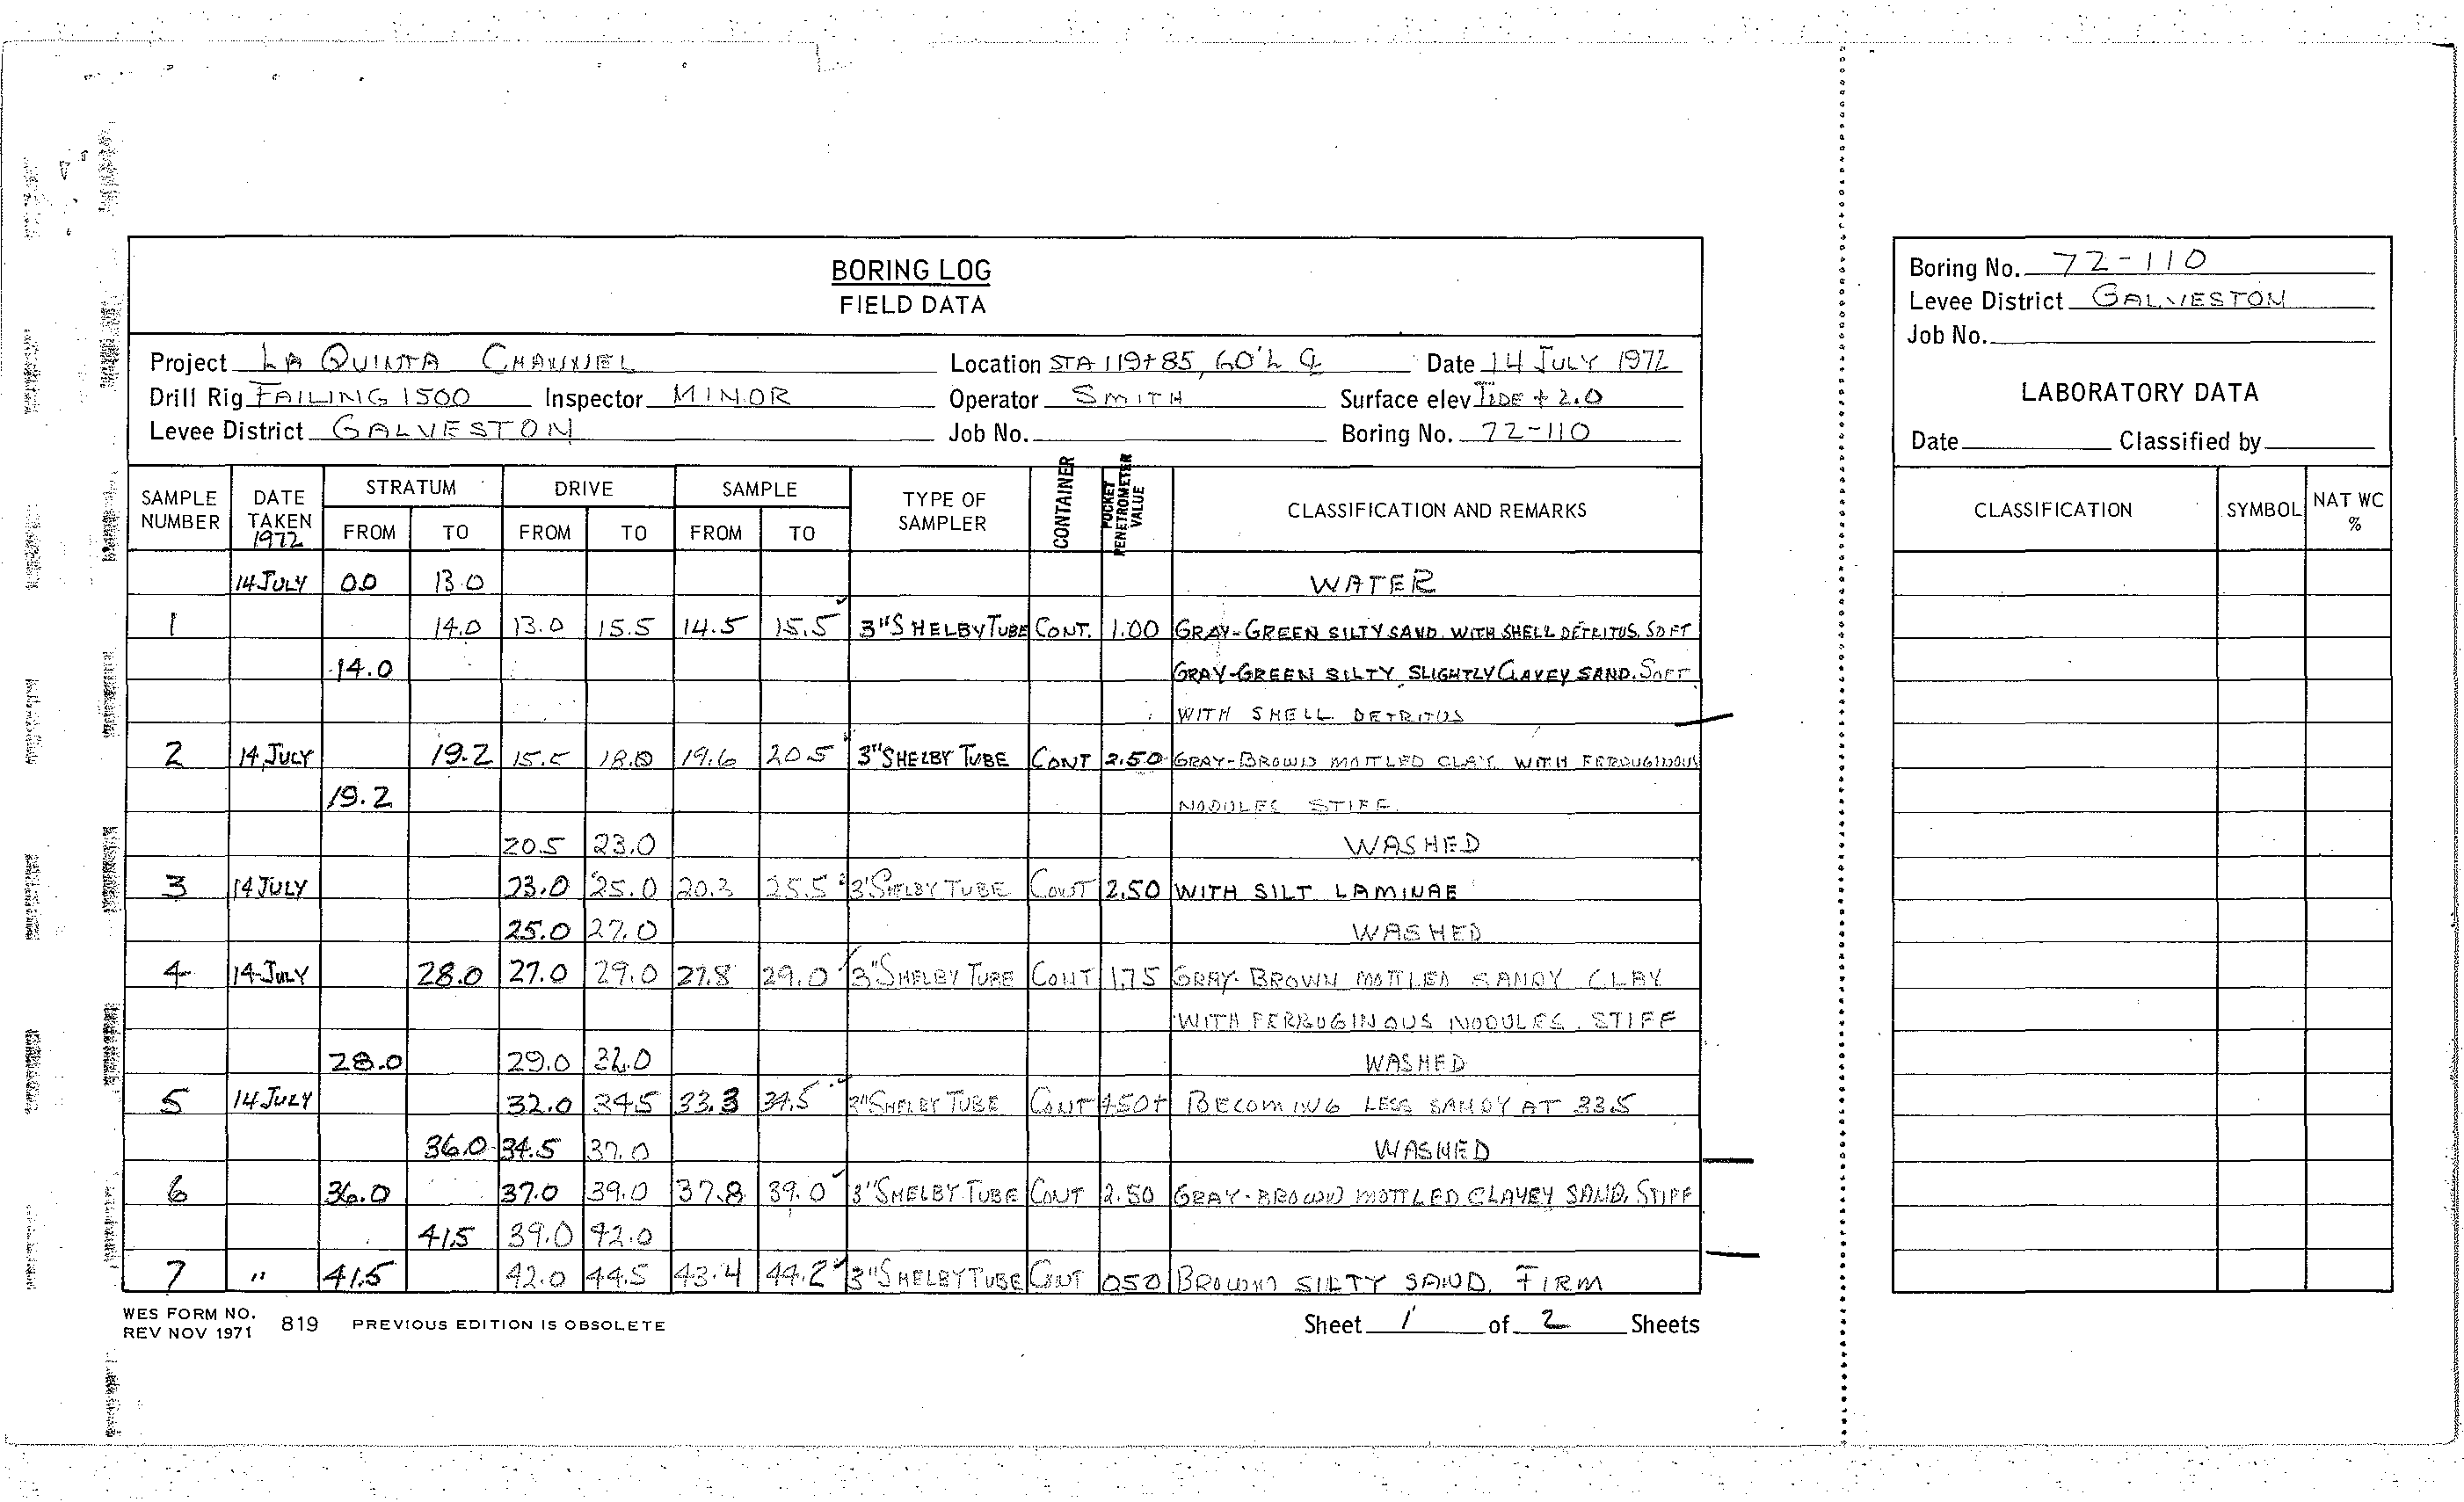 BORING LOG
FIELD DATA
Project LA QUINTA CHANNEL Location STA 119+85, 60'L ℄ Date 14 JULY 1972
Drill Rig FAILING 1500 Inspector MINOR Operator SMITH Surface elev TIDE + 2.0
Levee District GALVESTON Job No. Boring No. 72-110
SAMPLE NUMBER DATE TAKEN 1972 STRATUM FROM TO DRIVE FROM TO SAMPLE FROM TO TYPE OF SAMPLER CONTAINER POCKET PENETROMETER VALUE CLASSIFICATION AND REMARKS
14 JULY 0.0 13.0 WATER
1 14.0 13.0 15.5 14.5 15.5 3" SHELBY TUBE CONT. 1.00 GRAY-GREEN SILTY SAND. WITH SHELL DETRITUS. SOFT
14.0 GRAY-GREEN SILTY SLIGHTLY CLAYEY SAND. SOFT
WITH SHELL DETRITUS
2 14 JULY 19.2 15.5 18.0 19.6 20.5 3" SHELBY TUBE CONT 2.50 GRAY-BROWN MOTTLED CLAY WITH FERRUGINOUS
19.2 NODULES STIFF.
20.5 23.0 WASHED
3 14 JULY 23.0 25.0 20.3 25.5 3" SHELBY TUBE CONT 2.50 WITH SILT LAMINAE
25.0 27.0 WASHED
4 14 JULY 28.0 27.0 29.0 27.8 29.0 3" SHELBY TUBE CONT 1.75 GRAY-BROWN MOTTLED SANDY CLAY
WITH FERRUGINOUS NODULES. STIFF
28.0 29.0 32.0 WASHED
5 14 JULY 32.0 34.5 33.3 34.5 3" SHELBY TUBE CONT 4.50+ BECOMING LESS SANDY AT 33.5
36.0 34.5 37.0 WASHED
6 36.0 37.0 39.0 37.8 39.0 3" SHELBY TUBE CONT 2.50 GRAY-BROWN MOTTLED CLAYEY SAND, STIFF
41.5 39.0 42.0
7 " 41.5 42.0 44.5 43.4 44.2 3" SHELBY TUBE CONT 0.50 BROWN SILTY SAND. FIRM
WES FORM NO. 819 PREVIOUS EDITION IS OBSOLETE
REV NOV 1971
Sheet 1 of 2 Sheets
Boring No. 72-110
Levee District GALVESTON
Job No.
LABORATORY DATA
Date Classified by
CLASSIFICATION SYMBOL NAT WC %